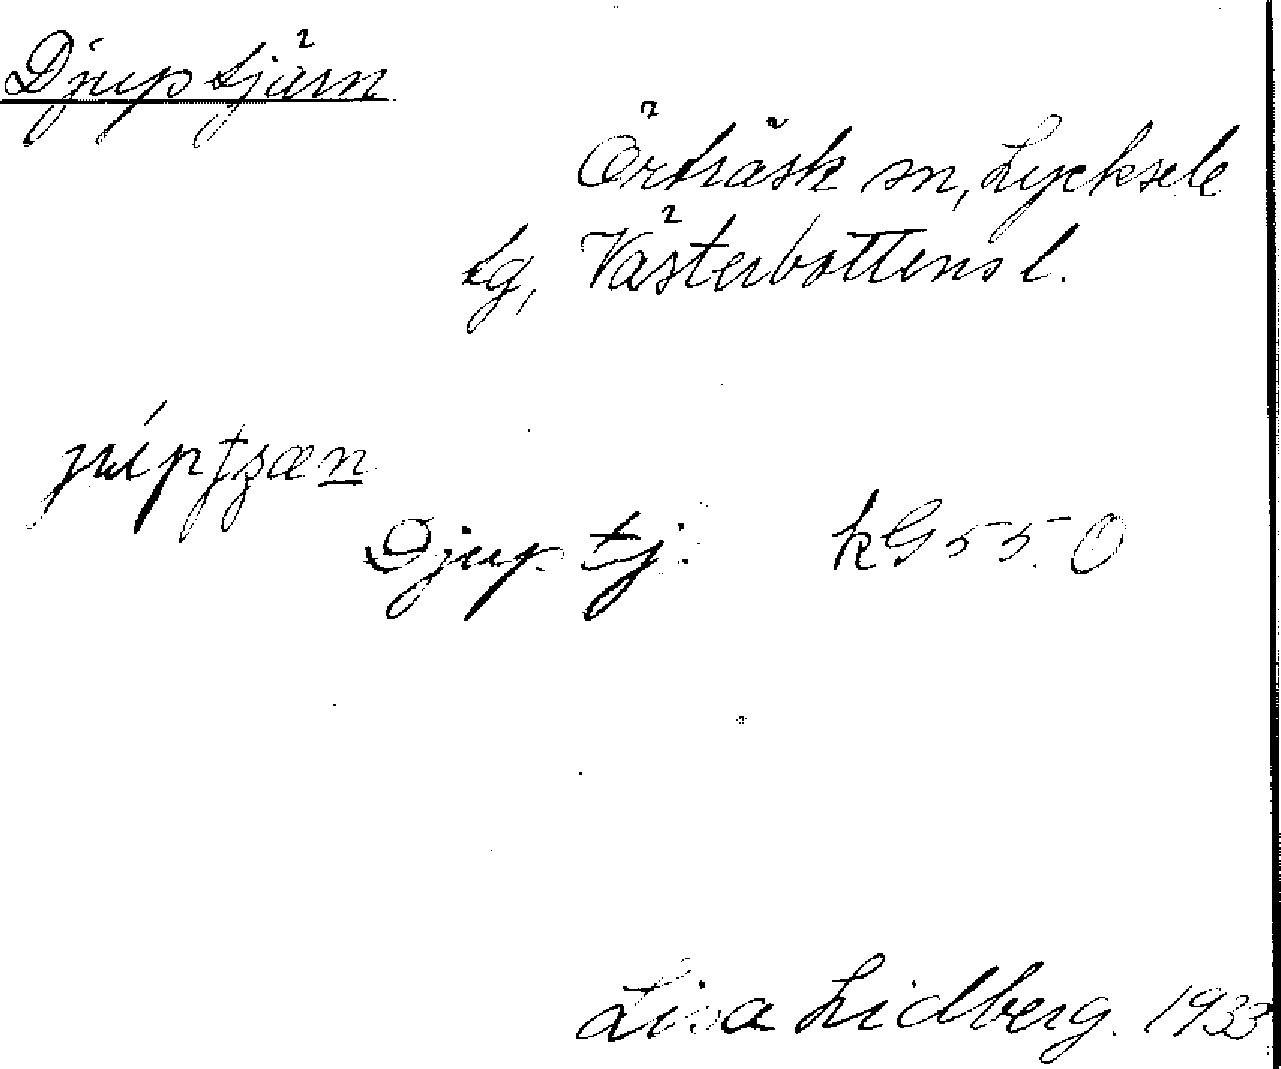 Djuptjärn
Örträsk sn, Lycksele
tg, Västerbottens l.
Djup tj. kG 55. O
Lisa Lidberg. 1933